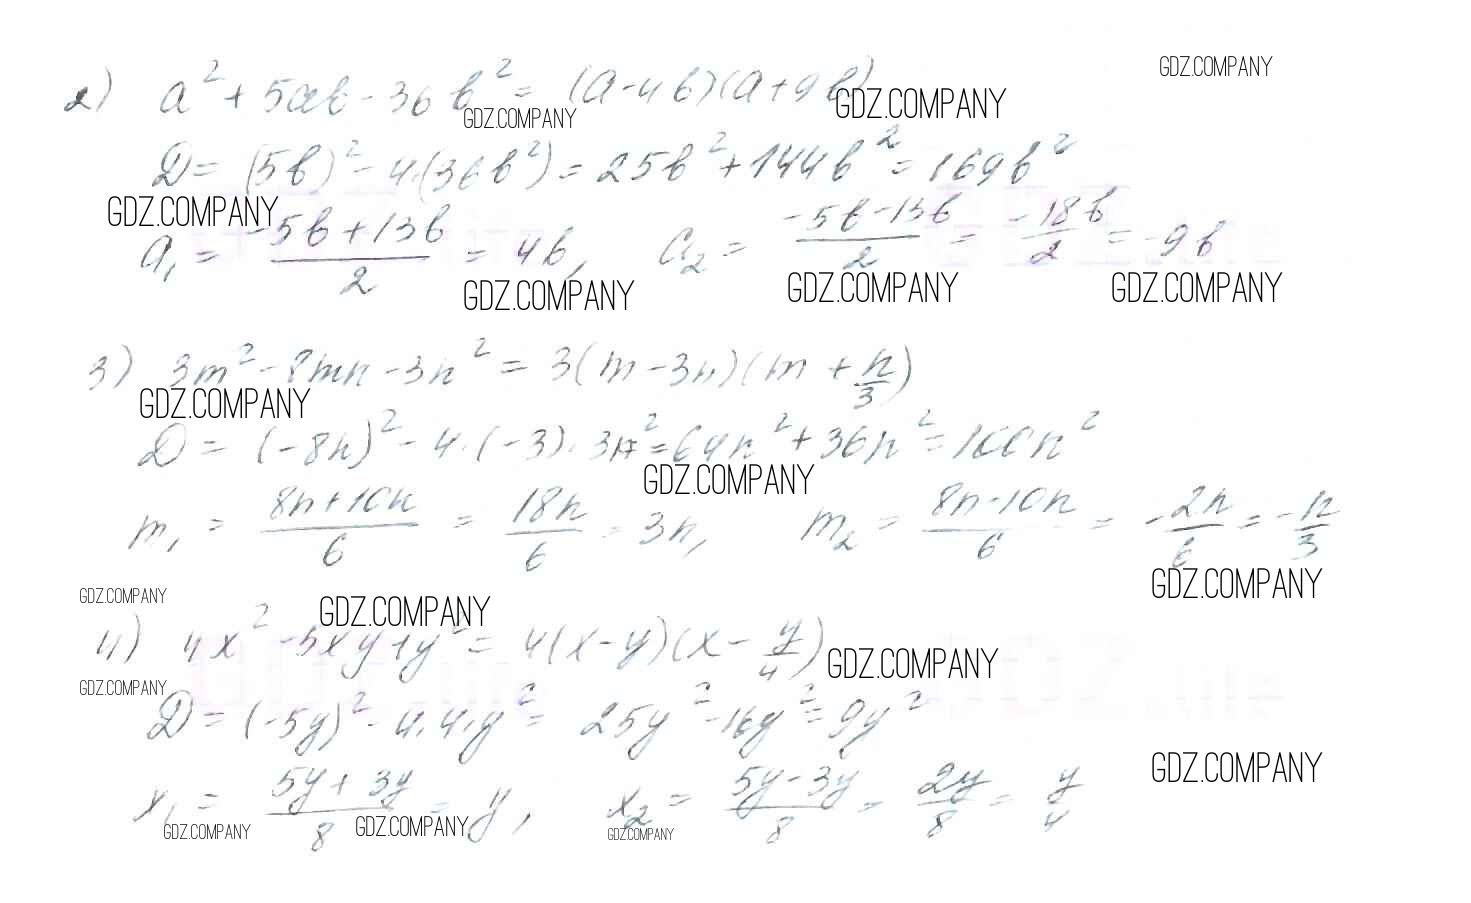 GDZ.COMPANY
2) a² + 5ab - 36b² = (a - 4b)(a + 9b)
GDZ.COMPANY
GDZ.COMPANY
D = (5b)² - 4·(36b²) = 25b² + 144b² = 169b²
GDZ.COMPANY
a₁ = (-5b + 13b)/2 = 4b, a₂ = (-5b - 13b)/2 = -18b/2 = -9b
GDZ.COMPANY
GDZ.COMPANY
GDZ.COMPANY
3) 3m² - 8mn - 3n² = 3(m - 3n)(m + n/3)
GDZ.COMPANY
D = (-8n)² - 4·(-3)·3n² = 64n² + 36n² = 100n²
GDZ.COMPANY
m₁ = (8n + 10n)/6 = 18n/6 = 3n, m₂ = (8n - 10n)/6 = -2n/6 = -n/3
GDZ.COMPANY
GDZ.COMPANY
GDZ.COMPANY
4) 4x² - 5xy + y² = 4(x - y)(x - y/4)
GDZ.COMPANY
GDZ.COMPANY
D = (-5y)² - 4·4·y² = 25y² - 16y² = 9y²
GDZ.COMPANY
x₁ = (5y + 3y)/8 = y, x₂ = (5y - 3y)/8 = 2y/8 = y/4
GDZ.COMPANY
GDZ.COMPANY
GDZ.COMPANY